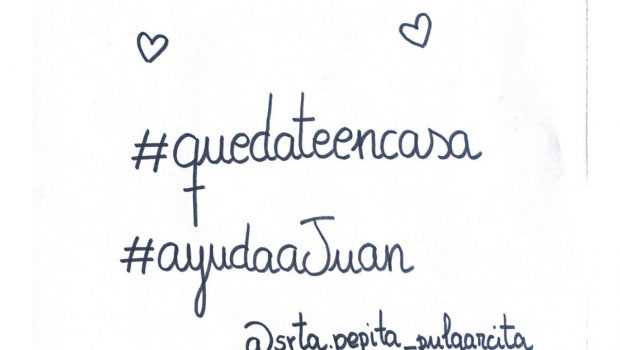 #quedateencasa
#ayudaaJuan
@srta.pepita_pulgarcita